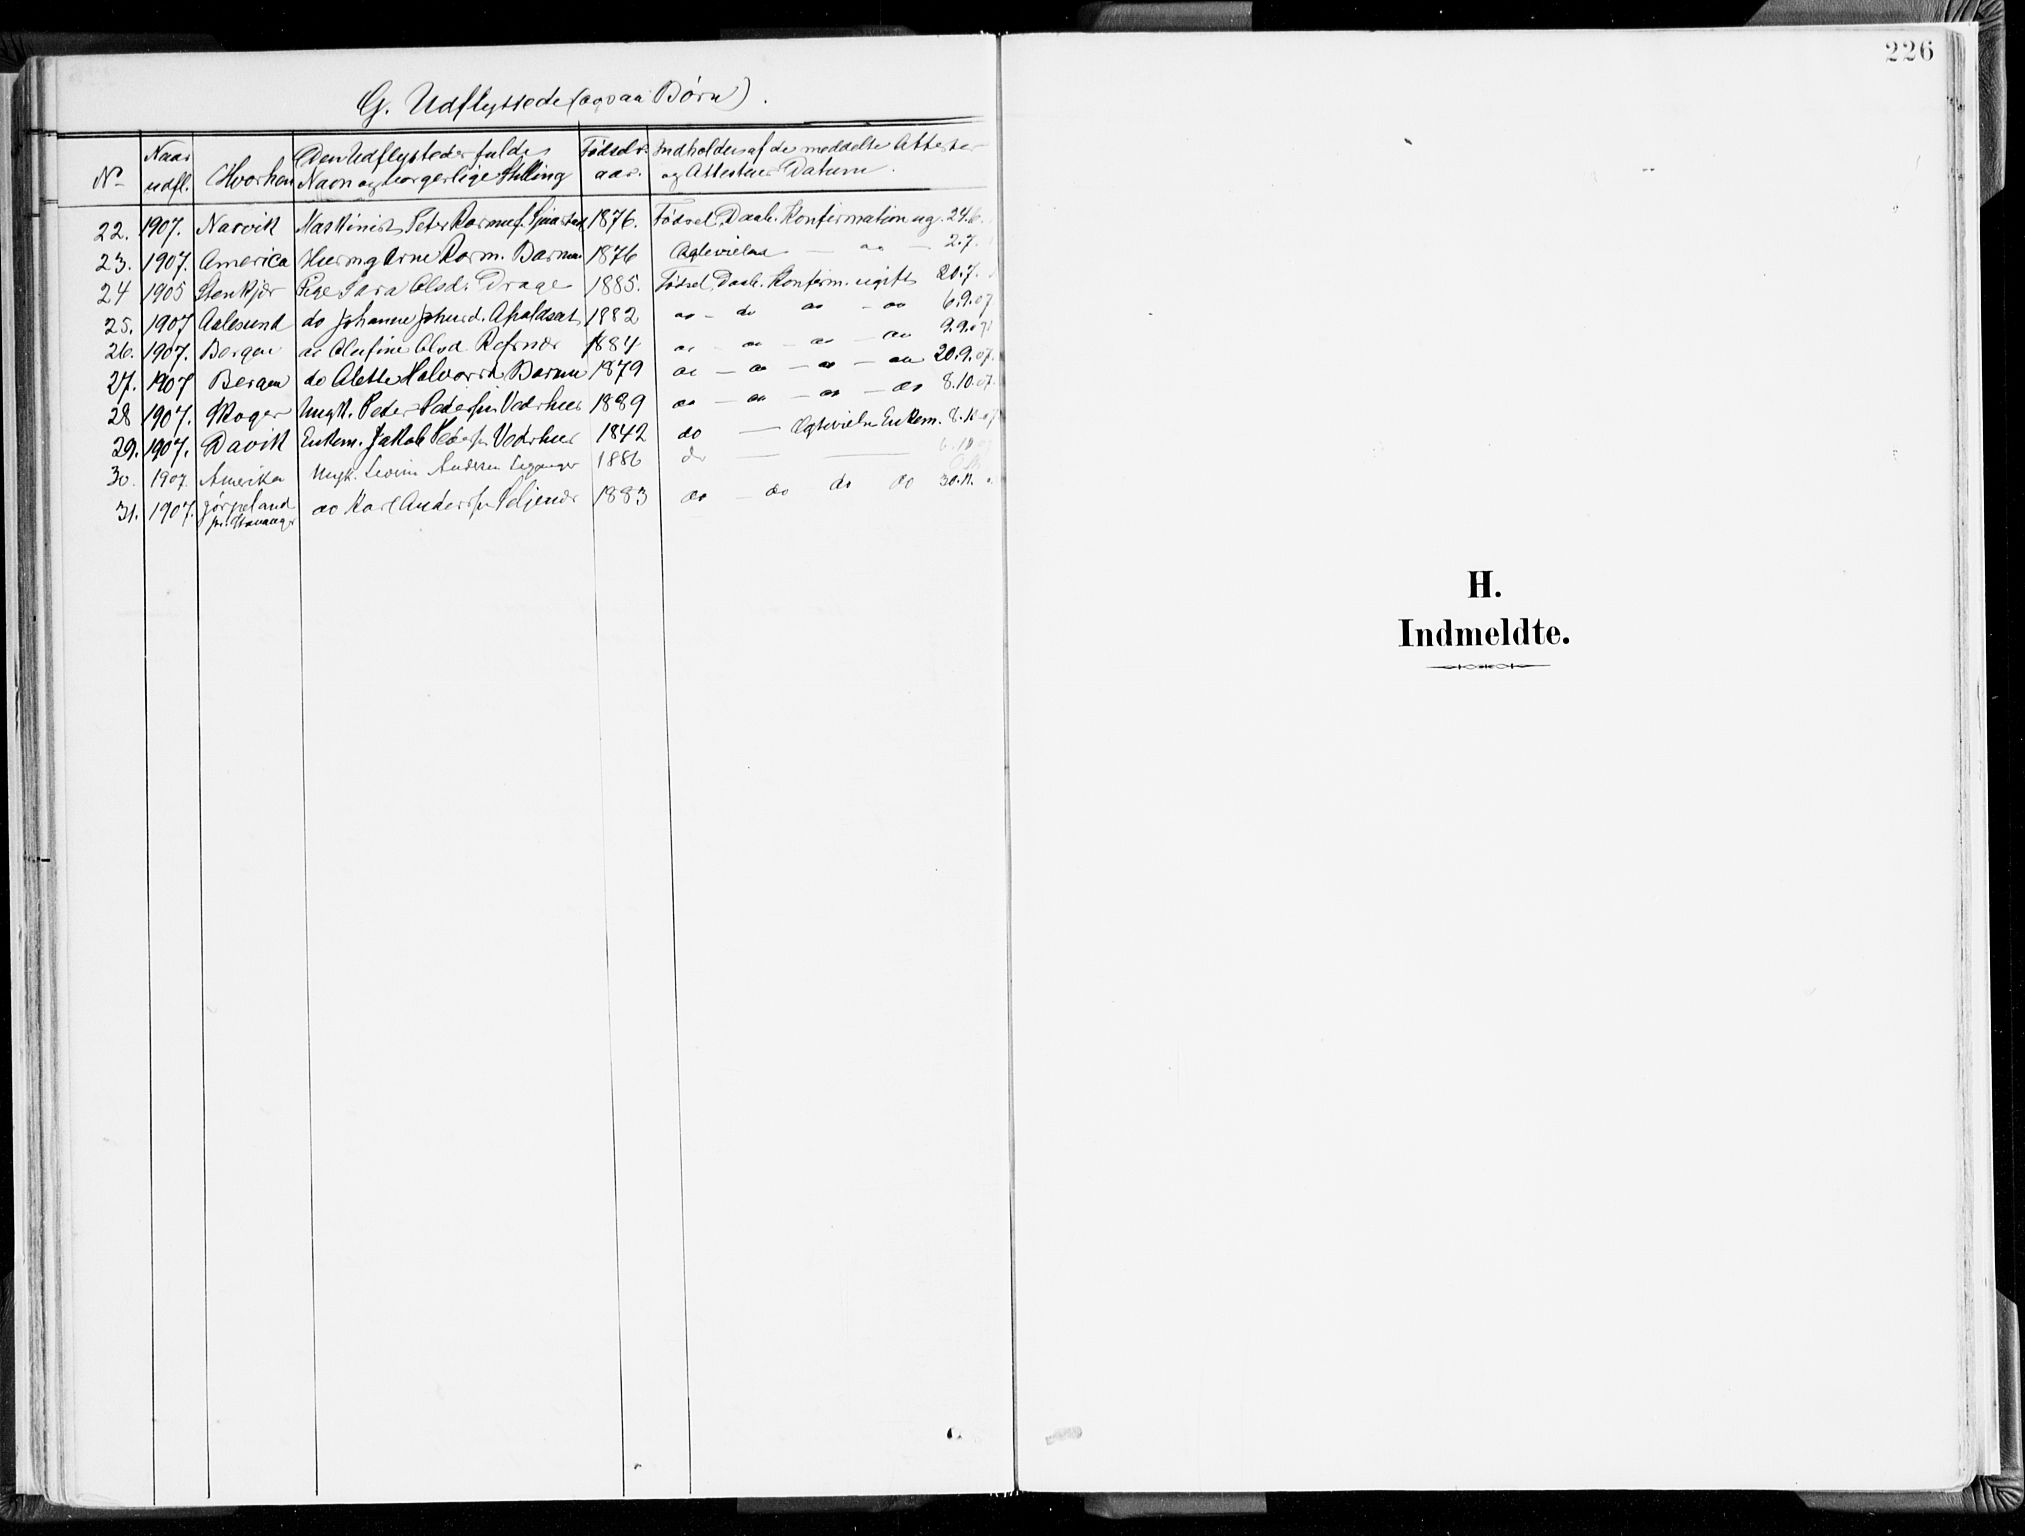 G. Udflyttede (ogsaa Børn).
No Naar udfl. Hvorhen Den Udflyttedes fulde Navn og borgerlige Stilling Fødsels-aar. Indholdet af de meddelte Attester og Attestens Datum.
22. 1907. Narvik Maskinist Peter Rasmus. 1876. Fødsel, Daab, Konfirmation ug. 24.6.
23. 1907. America Arne Rasm. Barmen 1876 Ægtevielse — do — 2.7.
24 1905 Stenkjær Pige Sara Olsd. Drage 1885. Fødsel, Daab, Konfirm. ugift 20.7.
25. 1907 Aalesund do Johanne Johnsd. Apaldsæt 1882 do — do do — do 6.9.07
26. 1907. Bergen do Olufine Olsd. Refsnæs 1884 do — do — do — do 9.9.07
27. 1907 Bergen do Alette Halvorsd. Barmen 1879 do — do — do — do 20.9.07.
28 1907. Skoger Ungk. Peder Peders. Vedvher 1889 do — do — do — do 8.10.07.
29. 1907. Davik Enkem. Jakob 1842 do — Ægtevielse Enkem. 8.
30. 1907. Amerika Ungk. Andersen 1886 do — —
31. 1907. Jørpeland pr. Stavanger do Karl Anders. Seljenæs 1883 do — do do do 30.11.
226
H.
Indmeldte.